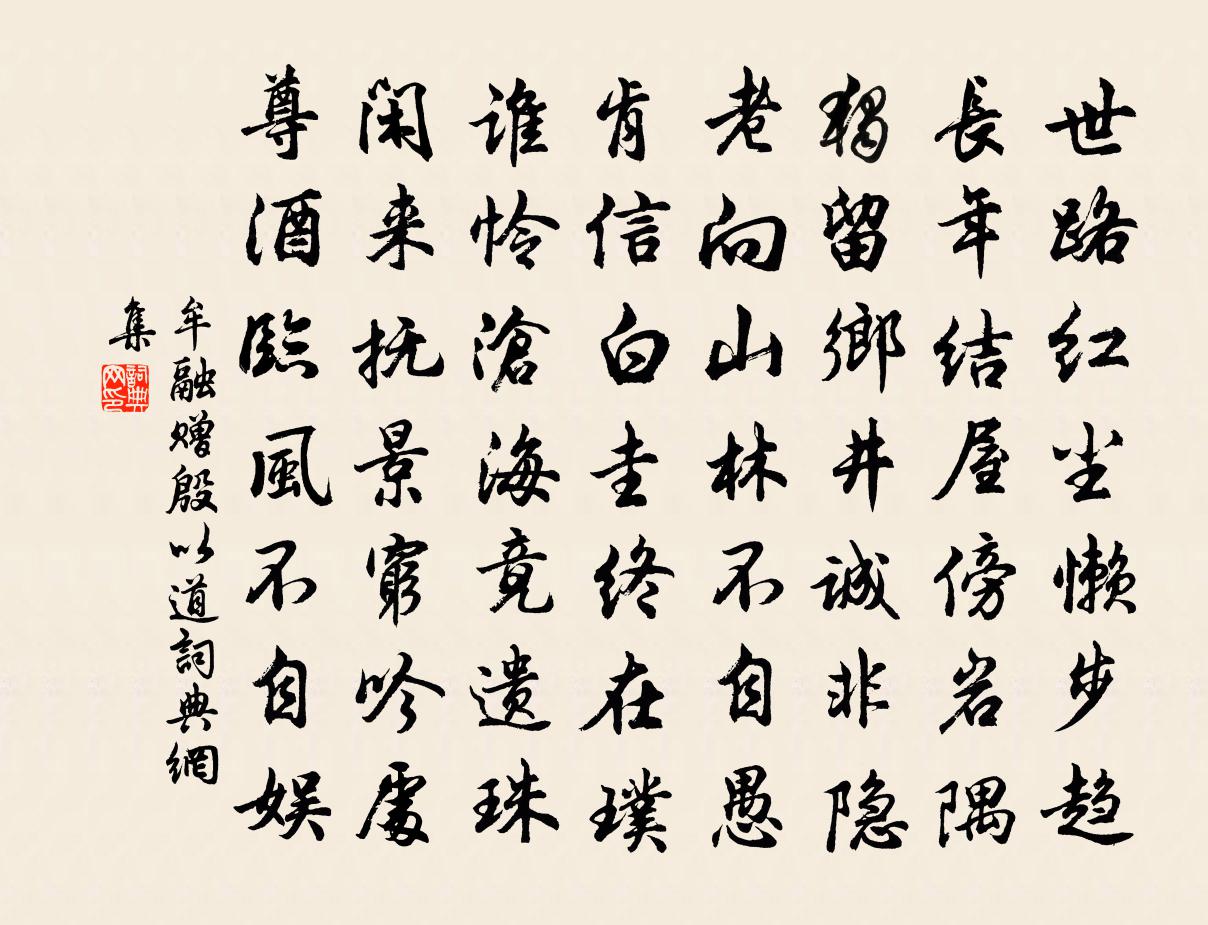 世路红尘懒步趋
長年结屋傍岩隅
独留鄉井诚非隐
老向山林不自愚
肯信白圭终在璞
谁怜滄海竟遗珠
閑来抚景窮吟處
尊酒臨風不自娱
牟融赠殷以道詞典網
集
詞典
网印